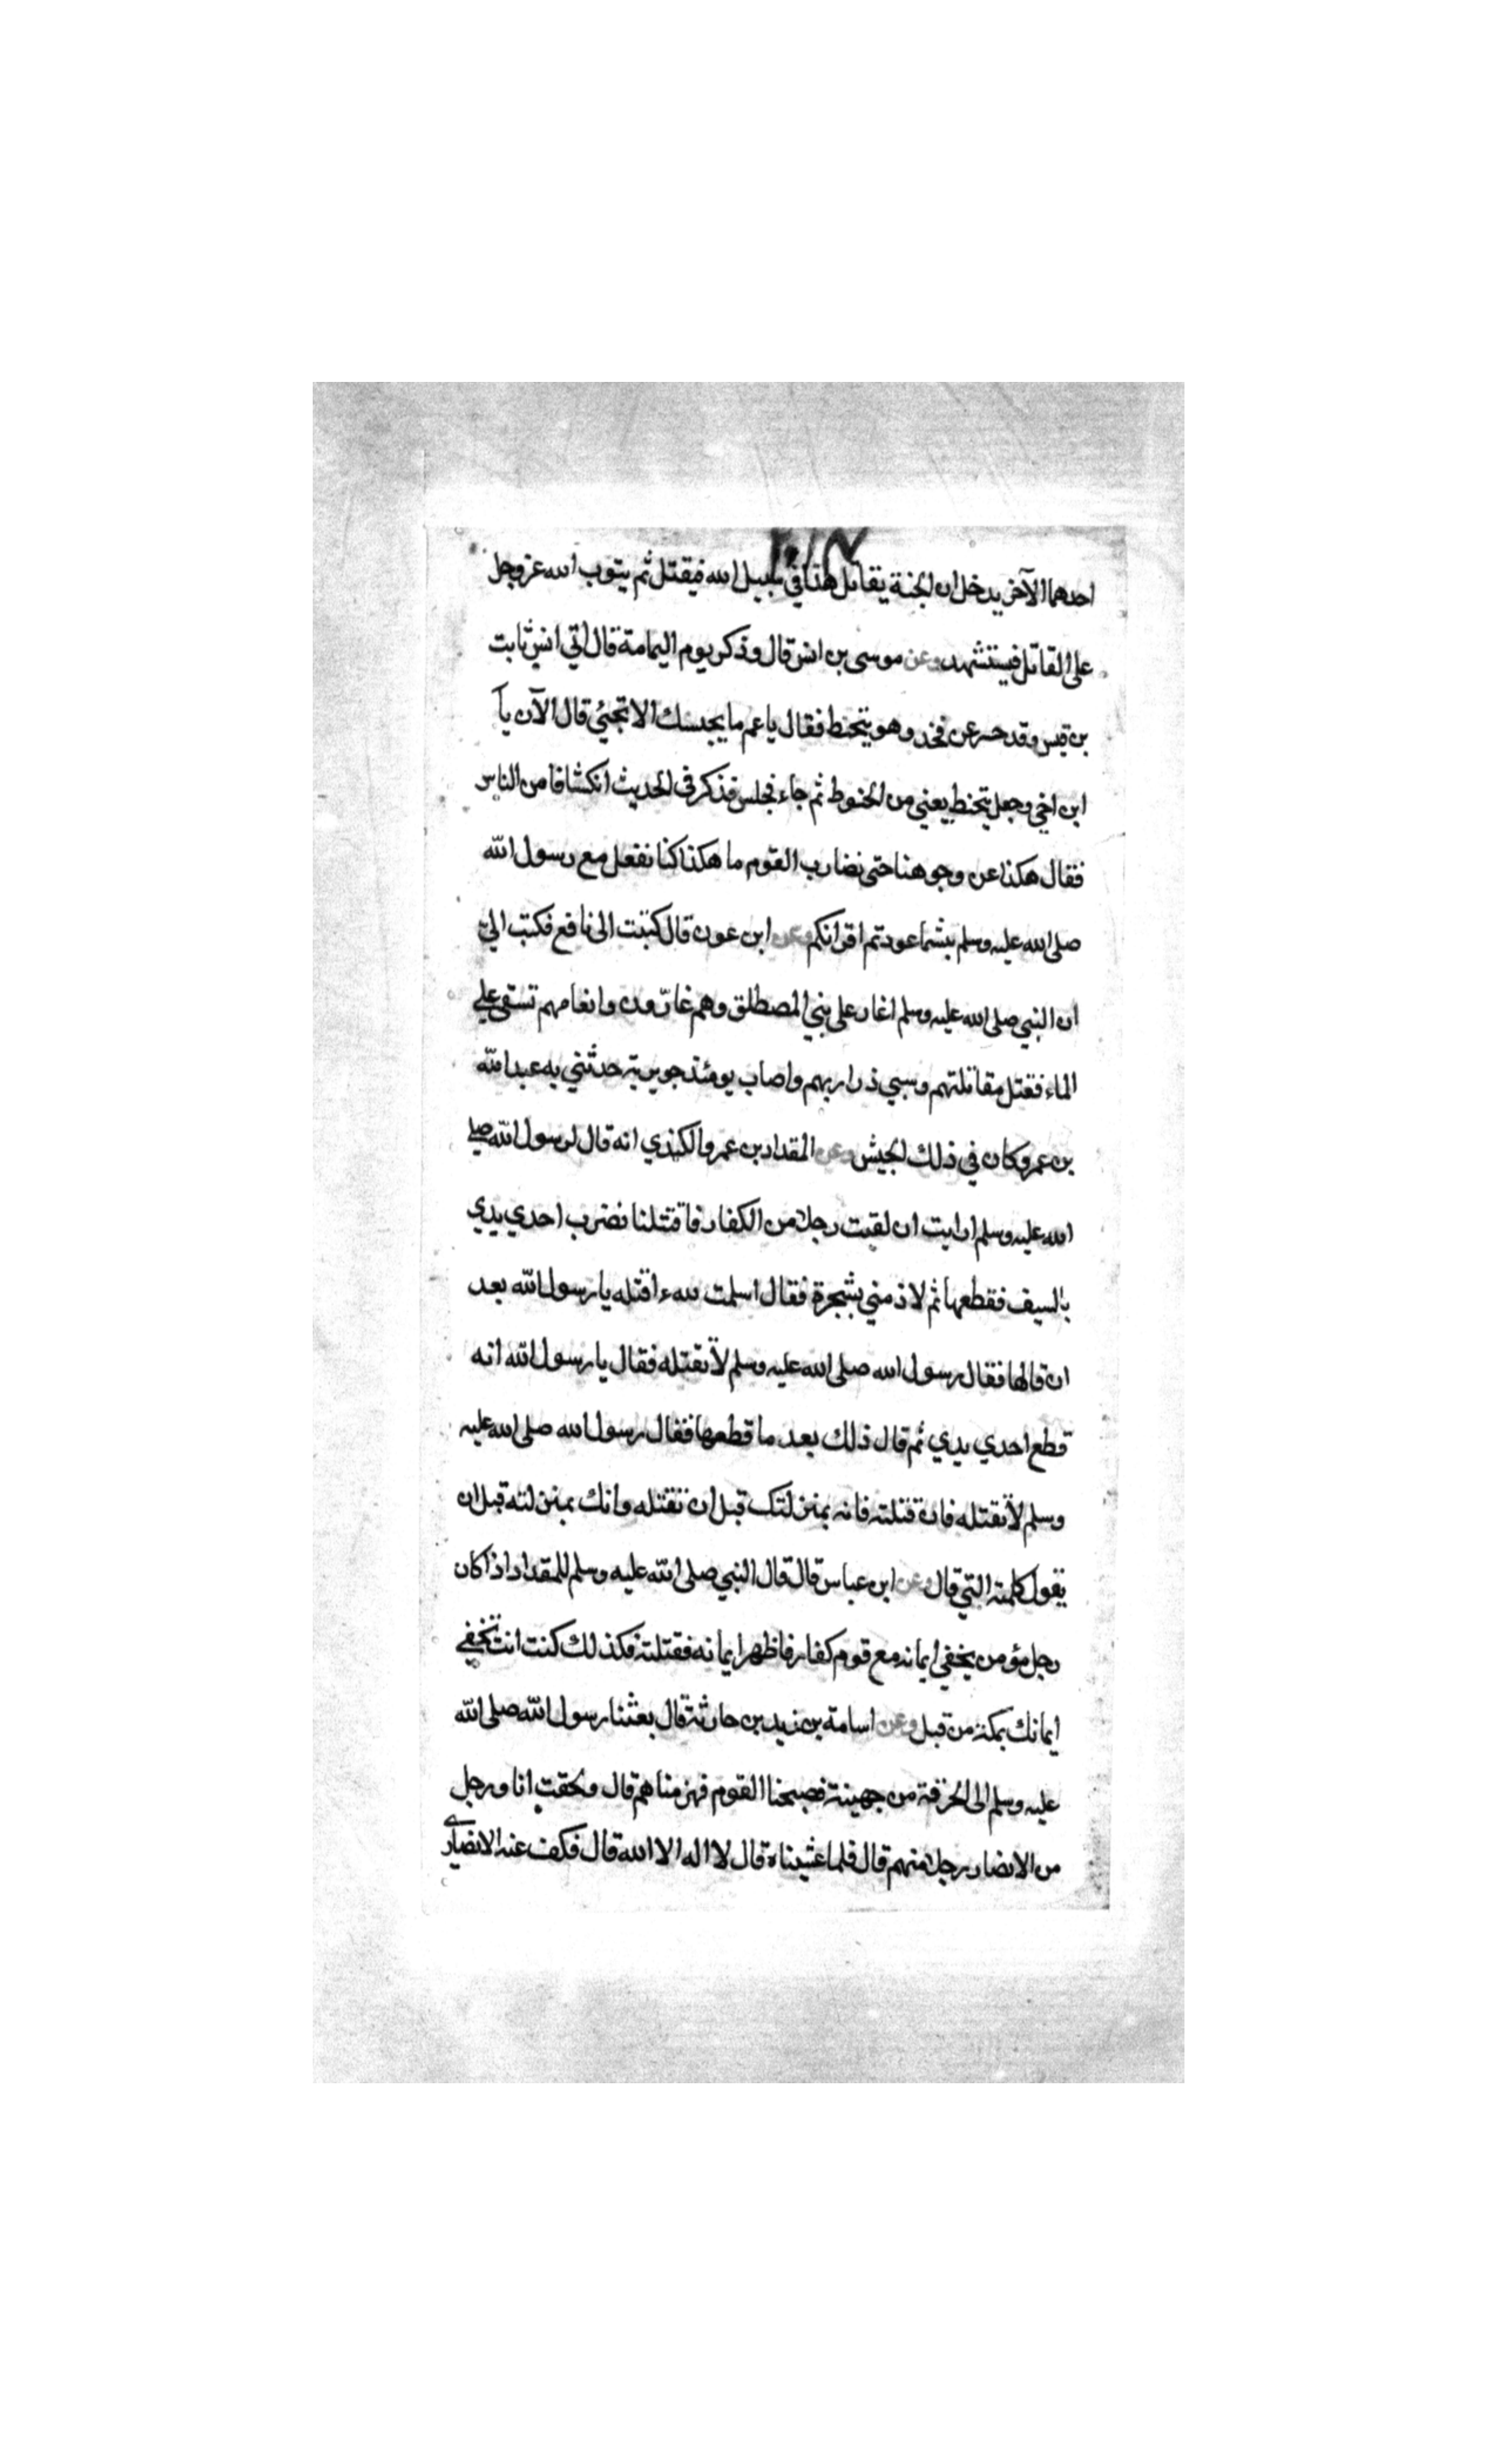 احدهما الآخر يدخلان الجنة يقاتل هذا في سبيل الله فيقتل ثم يتوب الله عز وجل
على القاتل فيستشهد وعن موسى بن انس قال وذكر يوم اليمامة قال اتى انس ثابت
بن قيس وقد حسر عن فخذ وهو يتحنط فقال يا عم ما يحبسك الا تجئ قال الآن يا
ابن اخي وجعل يتحنط يعني من الحنوط ثم جاء فجلس فذكر في الحديث انكشافا من الناس
فقال هكذا عن وجوهنا حتى نضارب القوم ما هكذا كنا نفعل مع رسول الله
صلى الله عليه وسلم بئسما عودتم اقرانكم وعن ابن عون قال كتبت الى نافع فكتب الي
ان النبي صلى الله عليه وسلم اغار على بني المصطلق وهم غارّون وانعامهم تسقى على
الماء فقتل مقاتلتهم وسبي ذراريهم واصاب يومئذ جويرية حدثني به عبد الله
بن عمر وكان في ذلك الجيش وعن المقداد بن عمرو الكندي انه قال لرسول الله صلى
الله عليه وسلم ارايت ان لقيت رجلا من الكفار فاقتتلنا فضرب احدي يدي
بالسيف فقطعها ثم لاذ مني بشجرة فقال اسلمت لله ءاقتله يا رسول الله بعد
ان قالها فقال رسول الله صلى الله عليه وسلم لا تقتله فقال يا رسول الله انه
قطع احدي يدي ثم قال ذلك بعد ما قطعها فقال رسول الله صلى الله عليه
وسلم لا تقتله فان قتلته فانه بمنزلتك قبل ان تقتله وانك بمنزلته قبل ان
يقول كلمته التي قال وعن ابن عباس قال قال النبي صلى الله عليه وسلم للمقداد اذا كان
رجل مؤمن يخفي ايمانه مع قوم كفار فاظهر ايمانه فقتلته فكذلك كنت انت تخفي
ايمانك بمكة من قبل وعن اسامة بن زيد بن حارثة قال بعثنا رسول الله صلى الله
عليه وسلم الى الحرقة من جهينة فصبحنا القوم فهزمناهم قال ولحقت انا ورجل
من الانصار رجلا منهم قال فلما غشيناه قال لا اله الا الله قال فكف عنه الانصاري